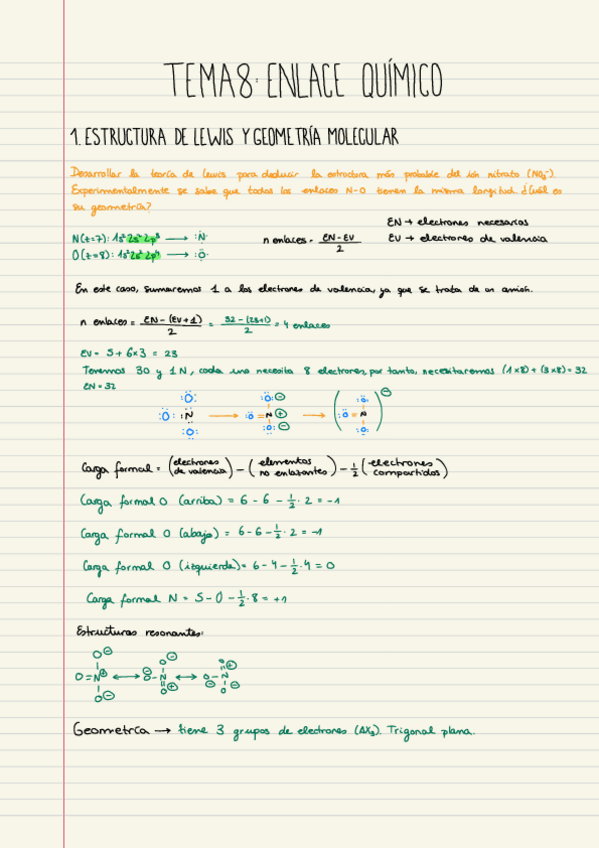 TEMA 8: ENLACE QUÍMICO
1. ESTRUCTURA DE LEWIS Y GEOMETRÍA MOLECULAR
Desarrollar la teoría de Lewis para deducir la estructura más probable del ión nitrato (NO₃⁻).
Experimentalmente se sabe que todos los enlaces N-O tienen la misma longitud ¿Cuál es
su geometría?
EN → electrones necesarios
N (z=7): 1s² 2s² 2p³ → :N·
n enlaces = (EN - EV)/2
EV → electrones de valencia
O (z=8): 1s² 2s² 2p⁴ → :O·
En este caso, sumaremos 1 a los electrones de valencia, ya que se trata de un anión.
n enlaces = (EN - (EV+1))/2 = (32 - (23+1))/2 = 4 enlaces
EV = 5 + 6×3 = 23
Tenemos 3O y 1N, cada uno necesita 8 electrones, por tanto, necesitaremos (1×8) + (3×8) = 32
EN = 32
:O: :O: ⊖ :O: ⊖
:O: :N → :O = N ⊕ → :O = N
:O: :O: ⊖ :O:
Carga formal = (electrones de valencia) - (elementos no enlazantes) - 1/2 (electrones compartidos)
Carga formal O (arriba) = 6 - 6 - 1/2 · 2 = -1
Carga formal O (abajo) = 6 - 6 - 1/2 · 2 = -1
Carga formal O (izquierda) = 6 - 4 - 1/2 · 4 = 0
Carga formal N = 5 - 0 - 1/2 · 8 = +1
Estructuras resonantes:
O⊖ O⊖ O
O=N⊕ ↔ O-N ↔ O-N-O
O⊖ O⊕ O⊖
Geometría → tiene 3 grupos de electrones (AX₃). Trigonal plana.